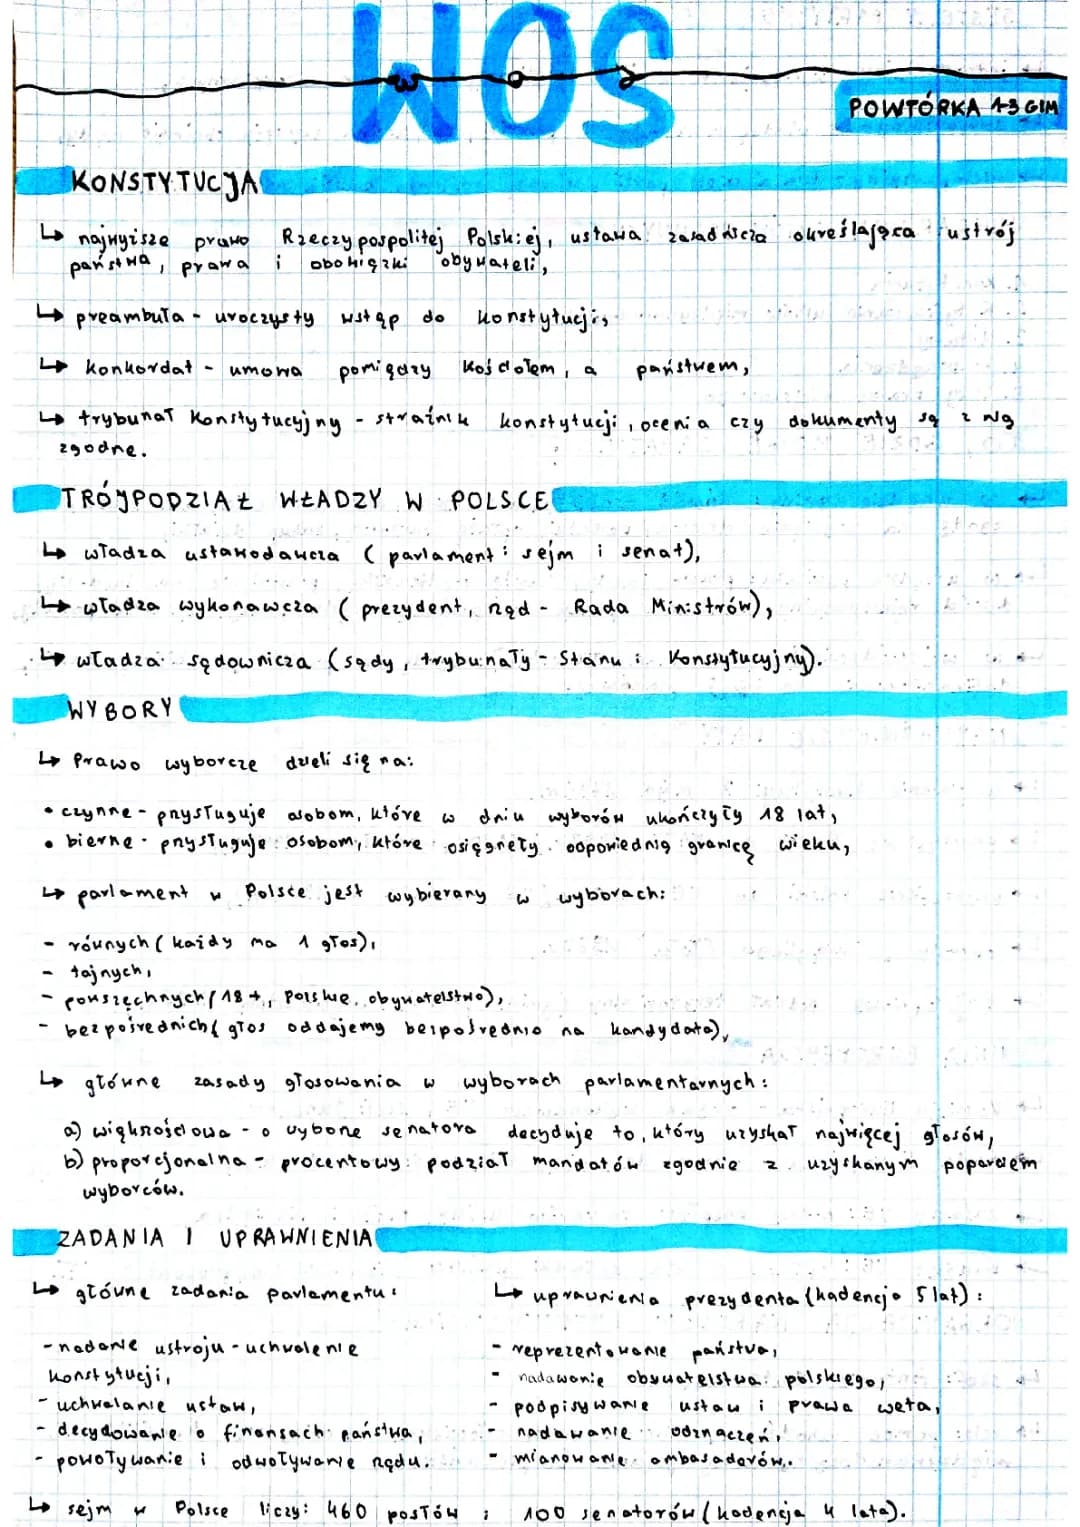 WOS
wos
POWTÓRKA 1-3 GIM
KONSTYTUCJA
↳ najwyższe prawo Rzeczypospolitej Polskiej, ustawa zasadnicza określająca ustrój
państwa, prawa i obowiązki obywateli,
↳ preambuła - uroczysty wstęp do konstytucji,
↳ konkordat - umowa pomiędzy kościołem, a państwem,
↳ trybunał Konstytucyjny - strażnik konstytucji, ocenia czy dokumenty są z nią
zgodne.
TRÓJPODZIAŁ WŁADZY W POLSCE
↳ władza ustawodawcza (parlament: sejm i senat),
↳ władza wykonawcza (prezydent, rząd - Rada Ministrów),
↳ władza sądownicza (sądy, trybunały - Stanu i Konstytucyjny).
WYBORY
↳ Prawo wyborcze dzieli się na:
• czynne - przysługuje osobom, które w dniu wyborów ukończyły 18 lat,
• bierne - przysługuje osobom, które osiągnęły odpowiednią granicę wieku,
↳ parlament w Polsce jest wybierany w wyborach:
- równych (każdy ma 1 głos),
- tajnych,
- powszechnych (18+, polskie obywatelstwo),
- bezpośrednich (głos oddajemy bezpośrednio na kandydata),
↳ główne zasady głosowania w wyborach parlamentarnych:
a) większościowa - o wyborze senatora decyduje to, który uzyskał najwięcej głosów,
b) proporcjonalna - procentowy podział mandatów zgodnie z uzyskanym poparciem
wyborców.
ZADANIA I UPRAWNIENIA
↳ główne zadania parlamentu:
- nadanie ustroju - uchwalenie
konstytucji,
- uchwalanie ustaw,
- decydowanie o finansach państwa,
- powoływanie i odwoływanie rządu.
↳ uprawnienia prezydenta (kadencja 5 lat):
- reprezentowanie państwa,
- nadawanie obywatelstwa polskiego,
- podpisywanie ustaw i prawa weta,
- nadawanie odznaczeń,
- mianowanie ambasadorów.
↳ sejm w Polsce liczy: 460 posłów i 100 senatorów (kadencja 4 lata).